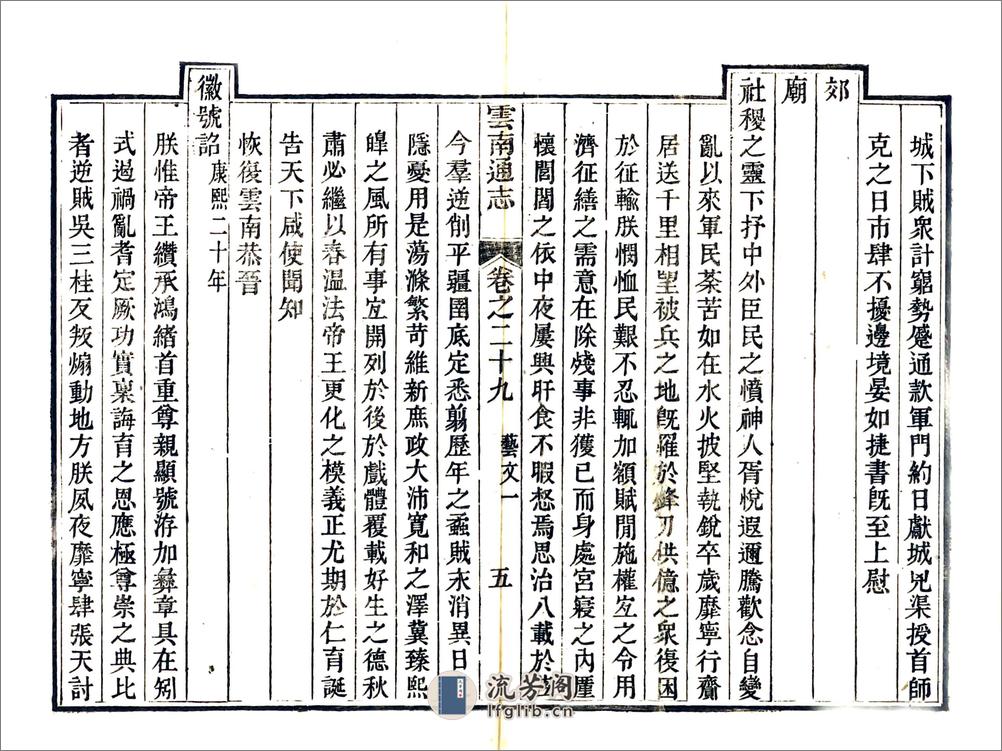 城下賊衆計窮勢蹙通款軍門約日獻城兇渠授首師
克之日市肆不擾邊境晏如捷書旣至上慰
郊
廟
社稷之靈下抒中外臣民之憤神人胥悅遐邇騰歡念自變
亂以來軍民荼苦如在水火披堅執銳卒歲靡寧行齎
居送千里相望被兵之地旣罹於鋒刃供億之衆復困
於征輸朕憫恤民艱不忍輒加額賦閒施權宐之令用
濟征繕之需意在除殘事非獲已而身處宮寢之內廑
懷閭閻之依中夜屢興旰食不暇惄焉思治八載於茲
雲南通志 卷之二十九 藝文一 五
今羣逆削平疆圉底定悉翦歷年之蝥賊永消異日
隱憂用是蕩滌繁苛維新庶政大沛寬和之澤冀臻熙
皥之風所有事宐開列於後於戲體覆載好生之德秋
肅必繼以春溫法帝王更化之模義正尤期於仁育誕
告天下咸使聞知
恢復雲南恭晉
徽號詔 康熙二十年
朕惟帝王纘承鴻緒首重尊親顯號洊加彝章具在矧
式遏禍亂耆定厥功實稟誨育之恩應極尊崇之典比
者逆賊吳三桂反叛煽動地方朕夙夜靡寧肆張天討
流芳阁
lfglib.cn